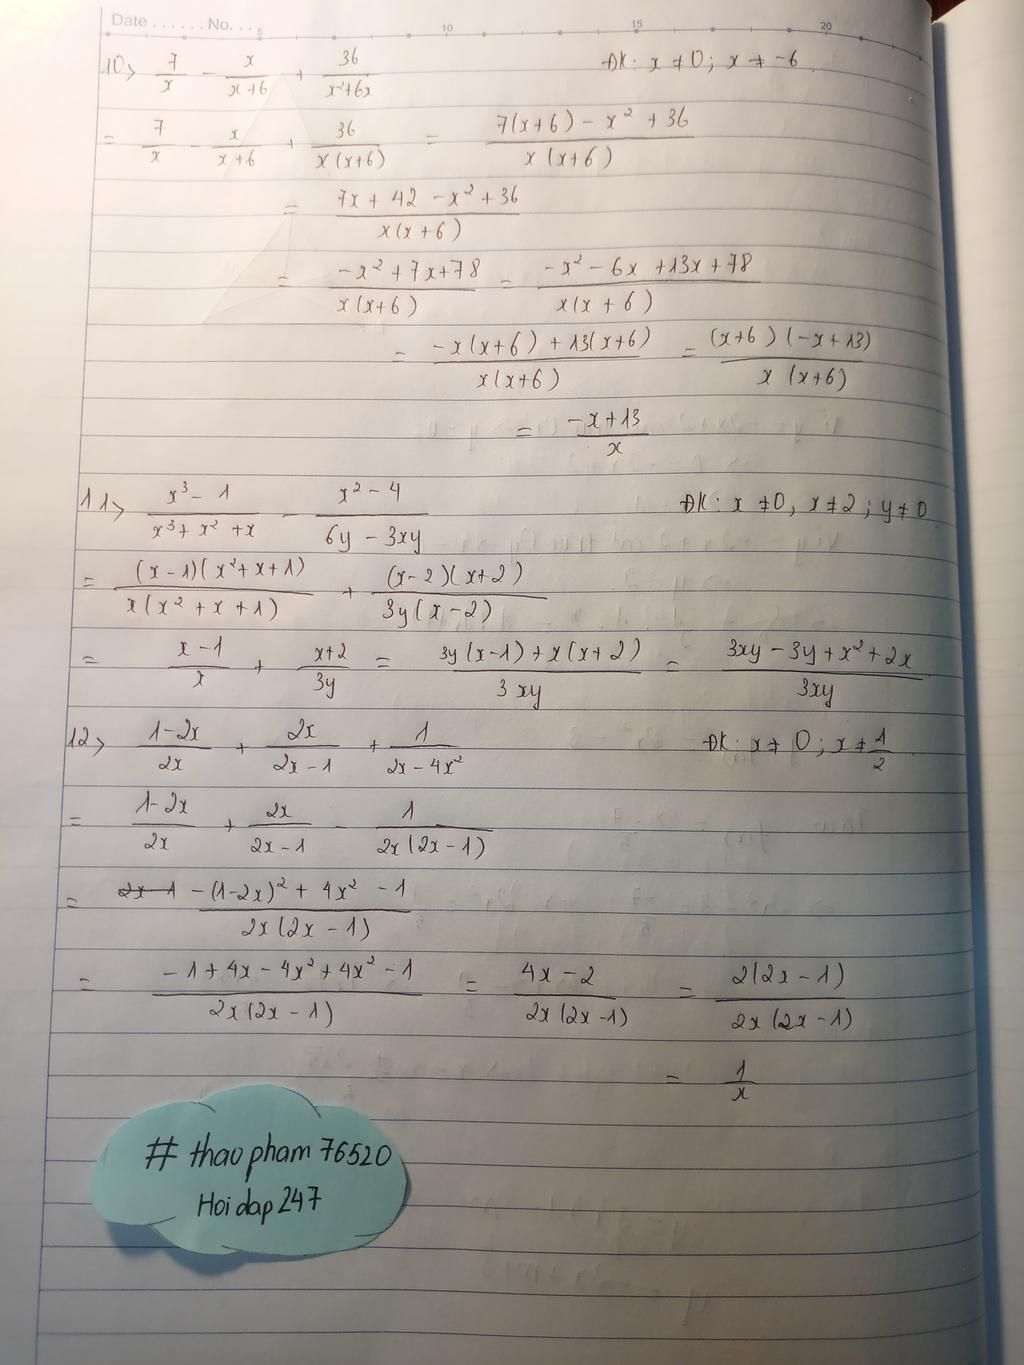 Date ...... No. ... 5 10 15 20
10> 7/x - x/(x+6) + 36/(x²+6x) ĐK: x ≠ 0; x ≠ -6
= 7/x - x/(x+6) + 36/(x(x+6)) = (7(x+6) - x² + 36)/(x(x+6))
= (7x + 42 - x² + 36)/(x(x+6))
= (-x² + 7x + 78)/(x(x+6)) = (-x² - 6x + 13x + 78)/(x(x+6))
= (-x(x+6) + 13(x+6))/(x(x+6)) = ((x+6)(-x+13))/(x(x+6))
= (-x+13)/x
11> (x³ - 1)/(x³ + x² + x) - (x² - 4)/(6y - 3xy) ĐK: x ≠ 0, x ≠ 2; y ≠ 0
= ((x-1)(x²+x+1))/(x(x²+x+1)) + ((x-2)(x+2))/(3y(x-2))
= (x-1)/x + (x+2)/3y = (3y(x-1) + x(x+2))/(3xy) = (3xy - 3y + x² + 2x)/(3xy)
12> (1-2x)/2x + 2x/(2x-1) + 1/(2x-4x²) ĐK: x ≠ 0; x ≠ 1/2
= (1-2x)/2x + 2x/(2x-1) - 1/(2x(2x-1))
= 2x-1 (-(1-2x)² + 4x² - 1)/(2x(2x-1))
= (-1 + 4x - 4x² + 4x² - 1)/(2x(2x-1)) = (4x-2)/(2x(2x-1)) = (2(2x-1))/(2x(2x-1))
= 1/x
# thaopham76520
Hoidap247